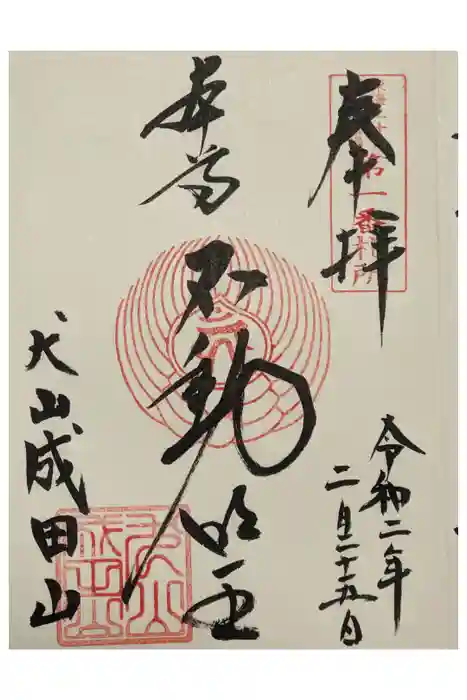 奉拝
第一番札所
令和二年
二月二十五日
本尊
不動明王
犬山成田山